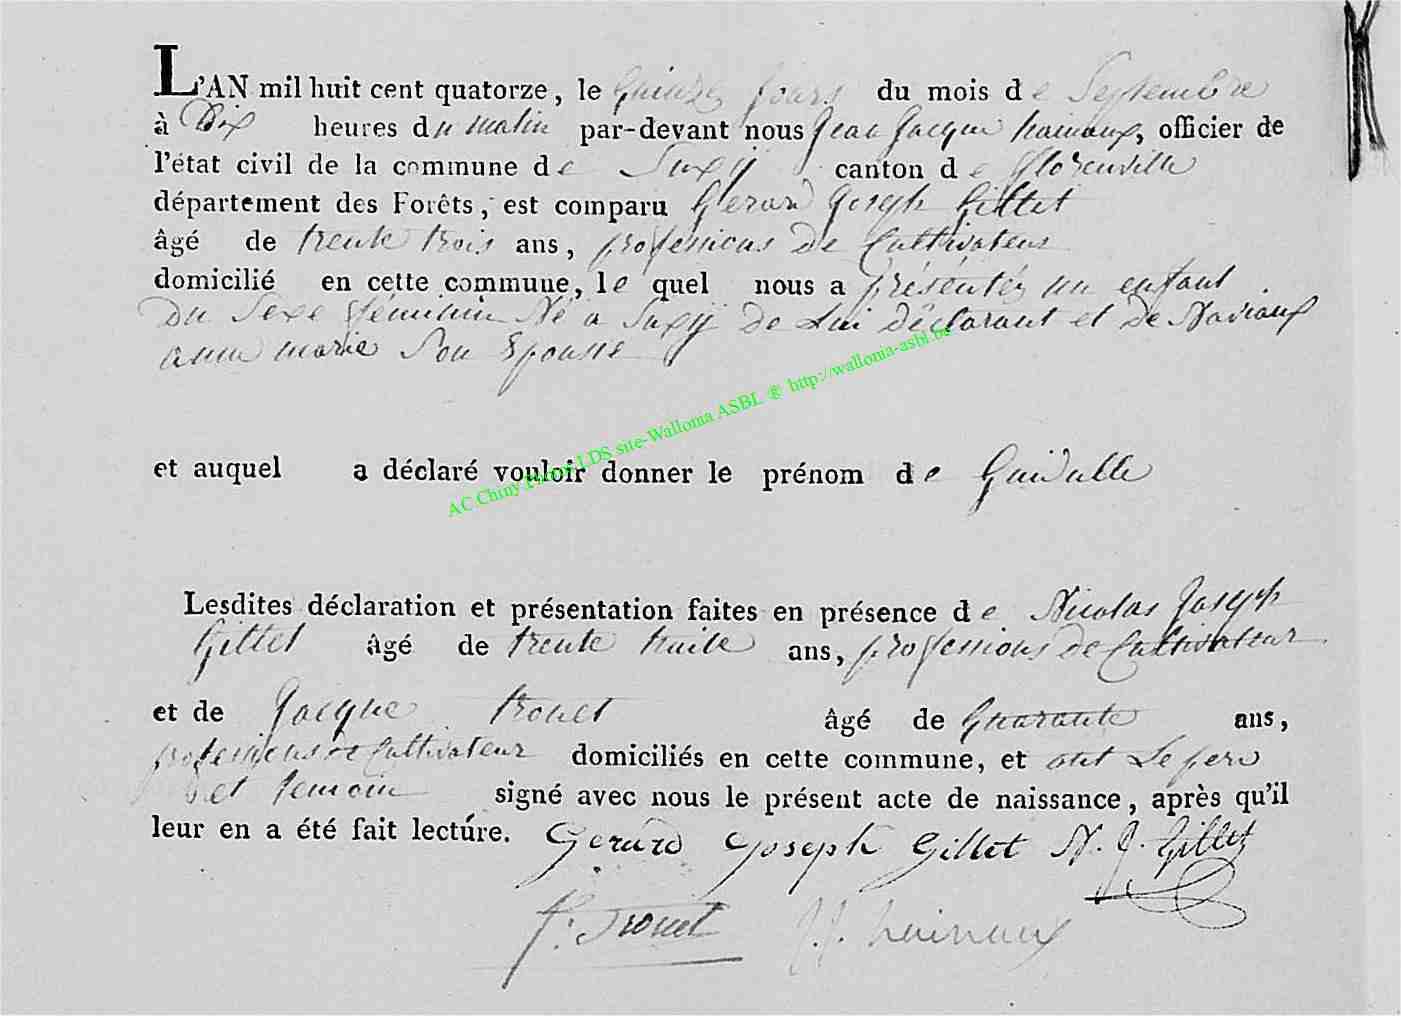 L'AN mil huit cent quatorze, le quinze jours du mois de Septembre
à Dix heures du matin par-devant nous Jean Jacque hainaux, officier de
l'état civil de la commune de Suxÿ canton de florenville
département des Forêts, est comparu Gerard Joseph Gillet
âgé de trente trois ans, professions de Cultivateur
domicilié en cette commune, le quel nous a présentéz un enfant
Du Sexe féminin Né a Suxÿ de Lui déclarant et de Naviaux
anne marie Son Epousse
et auquel a déclaré vouloir donner le prénom de Guidulle
AC Chiny Photos LDS site-Wallonia ASBL ® http://wallonia-asbl.be
Lesdites déclaration et présentation faites en présence de Nicolas Joseph
Gillet âgé de trente huite ans, professions de Cultivateur
et de Jacque trouet âgé de Quarante ans,
professions de Cultivateur domiciliés en cette commune, et ont Le pere
et temoin signé avec nous le présent acte de naissance, après qu'il
leur en a été fait lecture. Gerard Joseph Gillet N. J. Gillet
J. Trouet J. J. hainaux